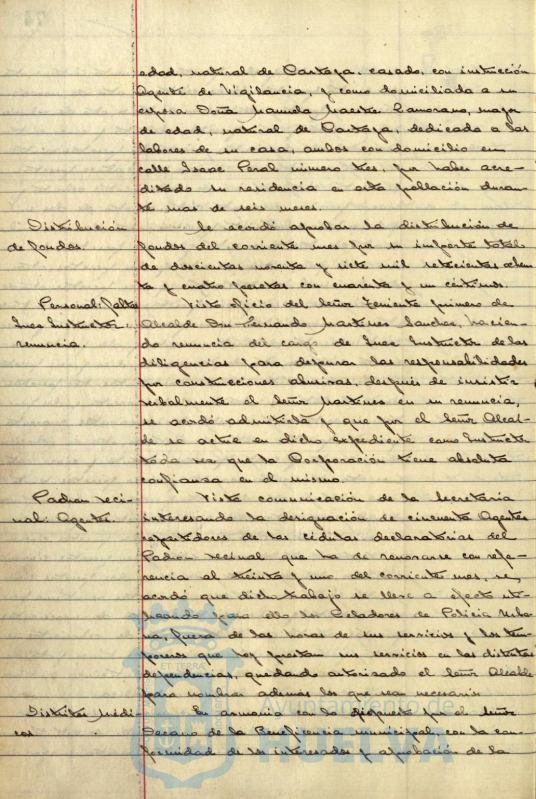 edad, natural de Cartaya, casado, con instrucción
Agente de Vigilancia, y como domiciliada a su
esposa Doña Manuela Maestre Zamorano, mayor
de edad, natural de Cartaya, dedicada a las
labores de su casa, ambos con domicilio en
calle Isaac Peral número tres, por haber acre-
ditado su residencia en esta población duran-
te mas de seis meses.
Distribución
de fondos.
Se acordó aprobar la distribución de
fondos del corriente mes por su importe total
de doscientas noventa y siete mil setecientas ochen
ta y cuatro pesetas con cuarenta y un céntimos.
Personal: faltas
Juez Instructor:
renuncia.
Visto oficio del Señor Teniente primero de
Alcalde Don Fernando Martinez Sanchez, hacien-
do renuncia del cargo de Juez Instructor de las
diligencias para depurar las responsabilidades
por construcciones abusivas, después de insistir
verbalmente el Señor Martinez en su renuncia,
se acordó admitirla y que por el Señor Alcal-
de se actúe en dicho expediente como Instructor
toda vez que la Corporación tiene absoluta
confianza en el mismo.
Padron veci-
nal: Agentes.
Vista comunicación de la Secretaría
interesando la designación de cincuenta Agentes
repartidores de las cédulas declaratorias del
Padrón vecinal que ha de renovarse con refe-
rencia al treinta y uno del corriente mes, se
acordó que dicho trabajo se lleve a efecto uti-
lizando para ello los Celadores de Policía Urba-
na, fuera de las horas de sus servicios y los tem-
poreros que hoy prestan sus servicios en las distintas
dependencias, quedando autorizado el Señor Alcalde
para nombrar además los que sean necesarios.
Distritos médi-
cos
En armonía con lo dispuesto por el Señor
Decano de la Beneficencia municipal, con la con-
formidad de los interesados y aprobación de la
ET TERRAE
Ayuntamiento de
HUELVA